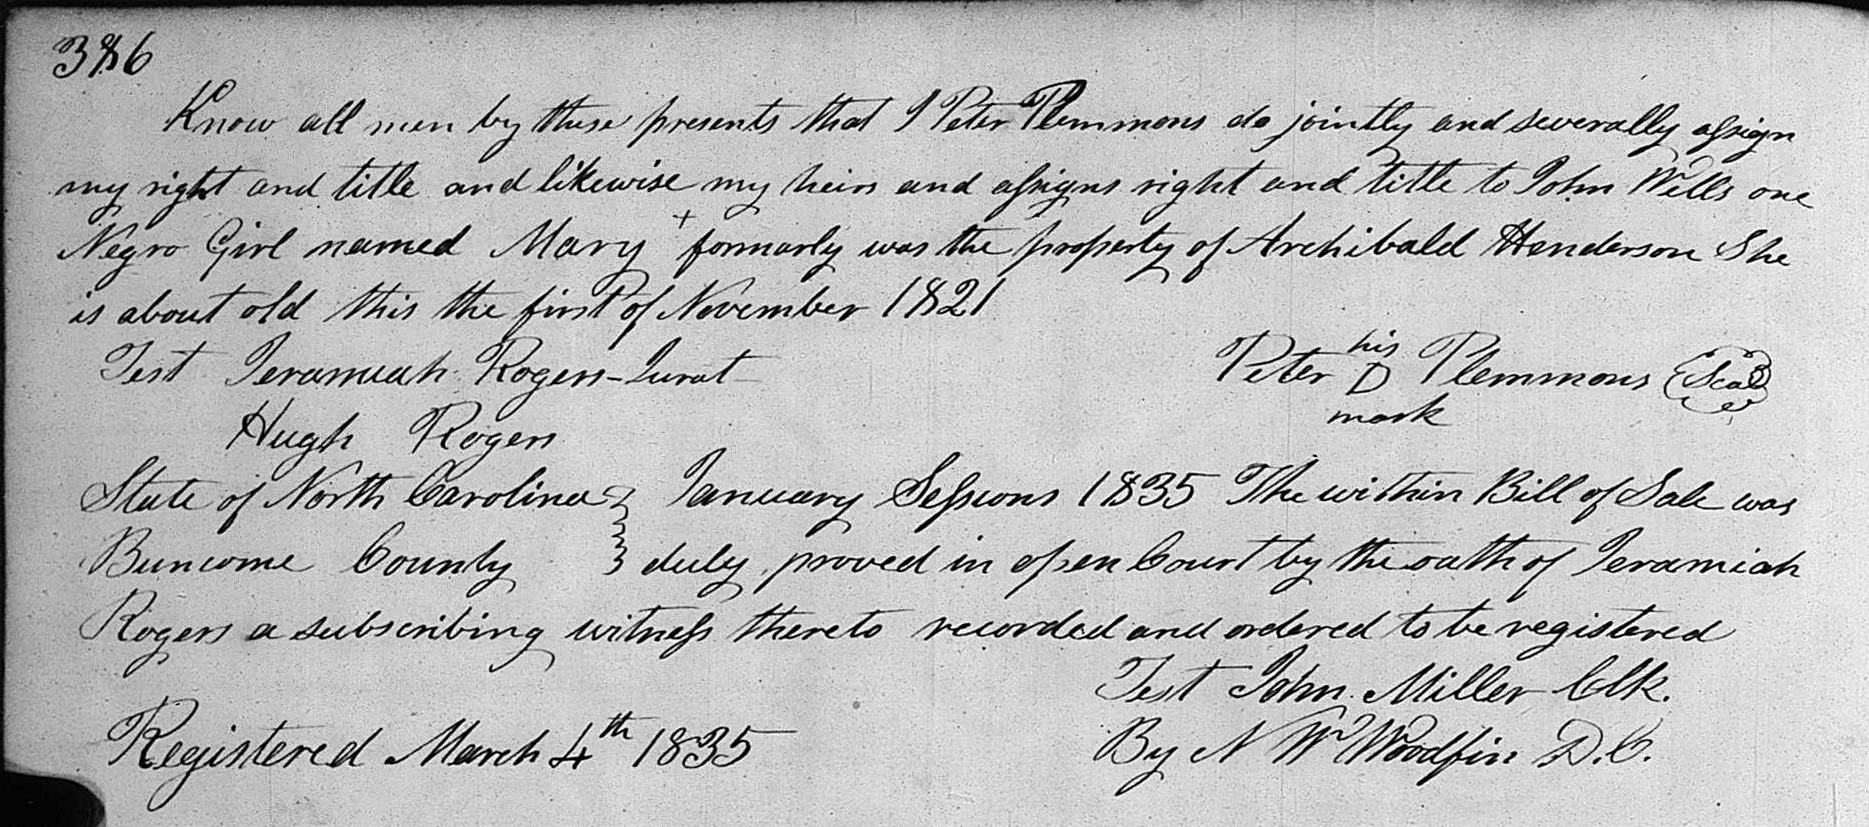 386
Know all men by these presents that I Peter Plemmons do jointly and severally assign
my right and title and likewise my heirs and assigns right and title to John Wells one
Negro Girl named Mary + formarly was the property of Archibald Henderson She
is about old this the first of November 1821
Test Jeramiah Rogers - Jurat
his
Peter D Plemmons Seal
mark
Hugh Rogers
State of North Carolina } January Sessions 1835 The within Bill of Sale was
Buncome County } duly proved in open Court by the oath of Jeramiah
Rogers a subscribing witness thereto recorded and ordered to be registered
Test John Miller Clk.
Registered March 4th 1835
By N W Woodfin D.C.